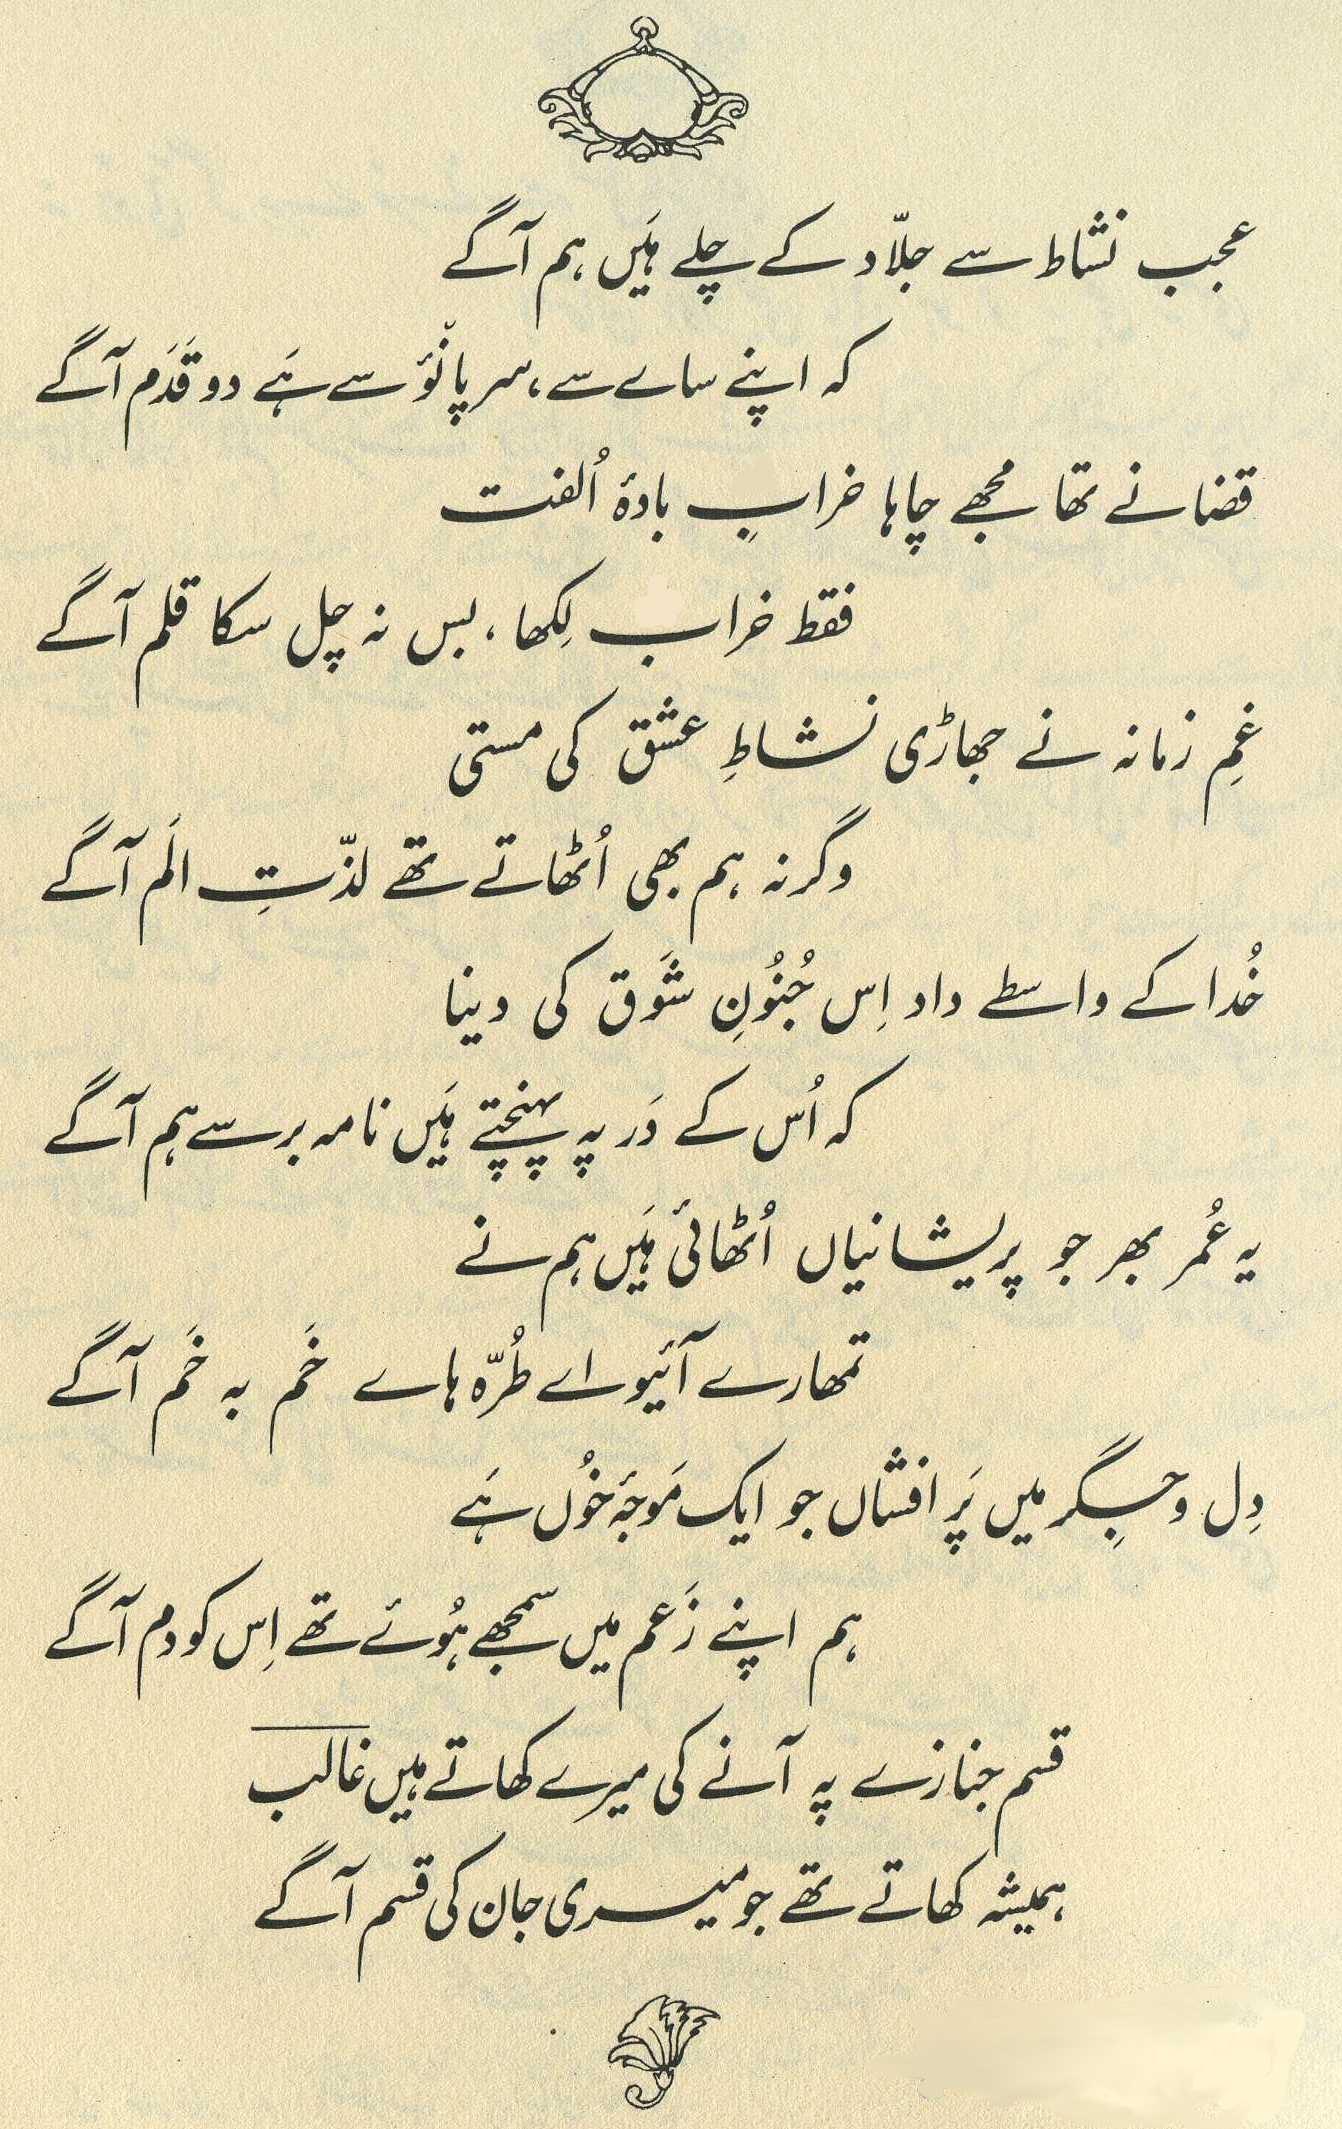 عجب نشاط سے جلّاد کے چلے ہَیں ہم آگے
کہ اپنے سایے سے، سر پانْؤ سے ہَے دو قَدَم آگے
قضا نے تھا مجھے چاہا خرابِ بادۂ اُلفت
فقط خراب لِکھا، بس نہ چل سکا قلم آگے
غمِ زمانہ نے جھاڑی نشاطِ عشق کی مستی
وگرنہ ہم بھی اُٹھاتے تھے لذّتِ الَم آگے
خُدا کے واسطے داد اِس جُنُونِ شَوق کی دینا
کہ اُس کے دَر پہ پہنچتے ہَیں نامہ بر سے ہم آگے
یہ عُمر بھر جو پریشانیاں اُٹھائی ہَیں ہم نے
تمھارے آئیو اے طُرّہ ہاے خَم بہ خَم آگے
دِل و جِگر میں پَر افشاں جو ایک مَوجۂ خُوں ہَے
ہم اپنے زَعم میں سمجھے ہُوئے تھے اِس کو دم آگے
قسم جنازے پہ آنے کی میرے کھاتے ہیں غالب
ہمیشہ کھاتے تھے جو میری جان کی قسم آگے